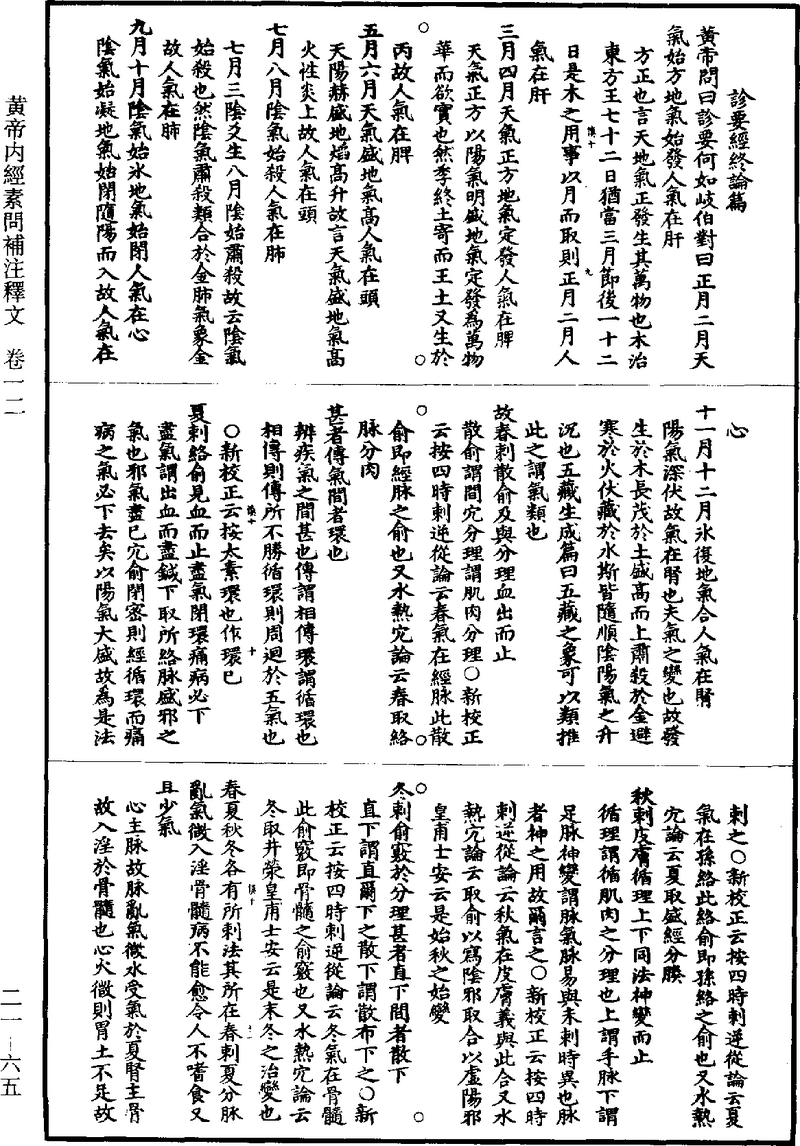 黃帝內經素問補注釋文　卷一二
二一—六五
診要經終論篇
黃帝問曰診要何如岐伯對曰正月二月天
氣始方地氣始發人氣在肝
方正也言天地氣正發生其萬物也木治
東方王七十二日猶當三月節後一十二
日是木之用事以月而取則正月二月人
氣在肝
三月四月天氣正方地氣定發人氣在脾
天氣正方以陽氣明盛地氣定發為萬物
華而欲實也然季終土寄而王土又生於
丙故人氣在脾
五月六月天氣盛地氣高人氣在頭
天陽赫盛地焰高升故言天氣盛地氣高
火性炎上故人氣在頭
七月八月陰氣始殺人氣在肺
七月三陰爻生八月陰始肅殺故云陰氣
始殺也然陰氣肅殺類合於金肺氣象金
故人氣在肺
九月十月陰氣始冰地氣始閉人氣在心
陰氣始凝地氣始閉隨陽而入故人氣在
心
十一月十二月冰復地氣合人氣在腎
陽氣深伏故氣在腎也夫氣之變也故發
生於木長茂於土盛高而上肅殺於金避
寒於火伏藏於水斯皆隨順陰陽氣之升
沉也五藏生成篇曰五藏之象可以類推
此之謂氣類也
故春刺散俞及與分理血出而止
散俞謂間穴分理謂肌肉分理○新校正
云按四時刺逆從論云春氣在經脉此散
俞即經脉之俞也又水熱穴論云春取絡
脉分肉
甚者傳氣間者環也
辨疾氣之間甚也傳謂相傳環謂循環也
相傳則傳所不勝循環則周迴於五氣也
○新校正云按太素環也作環已
夏刺絡俞見血而止盡氣閉環痛病必下
盡氣謂出血而盡鍼下取所絡脉盛邪之
氣也邪氣盡已穴俞閉密則經循環而痛
病之氣必下去矣以陽氣大盛故為是法
刺之○新校正云按四時刺逆從論云夏
氣在孫絡此絡俞即孫絡之俞也又水熱
穴論云夏取盛經分腠
秋刺皮膚循理上下同法神變而止
循理謂循肌肉之分理也上謂手脉下謂
足脉神變謂脉氣脉易與未刺時異也脉
者神之用故爾言之○新校正云按四時
刺逆從論云秋氣在皮膚義與此合又水
熱穴論云取俞以瀉陰邪取合以虛陽邪
皇甫士安云是始秋之始變
冬刺俞竅於分理甚者直下間者散下
直下謂直爾下之散下謂散布下之○新
校正云按四時刺逆從論云冬氣在骨髓
此俞竅即骨髓之俞竅也又水熱穴論云
冬取井滎皇甫士安云是末冬之治變也
春夏秋冬各有所刺法其所在春刺夏分脉
亂氣微入淫骨髓病不能愈令人不嗜食又
且少氣
心主脉故脉亂氣微水受氣於夏腎主骨
故入淫於骨髓也心火微則胃土不足故